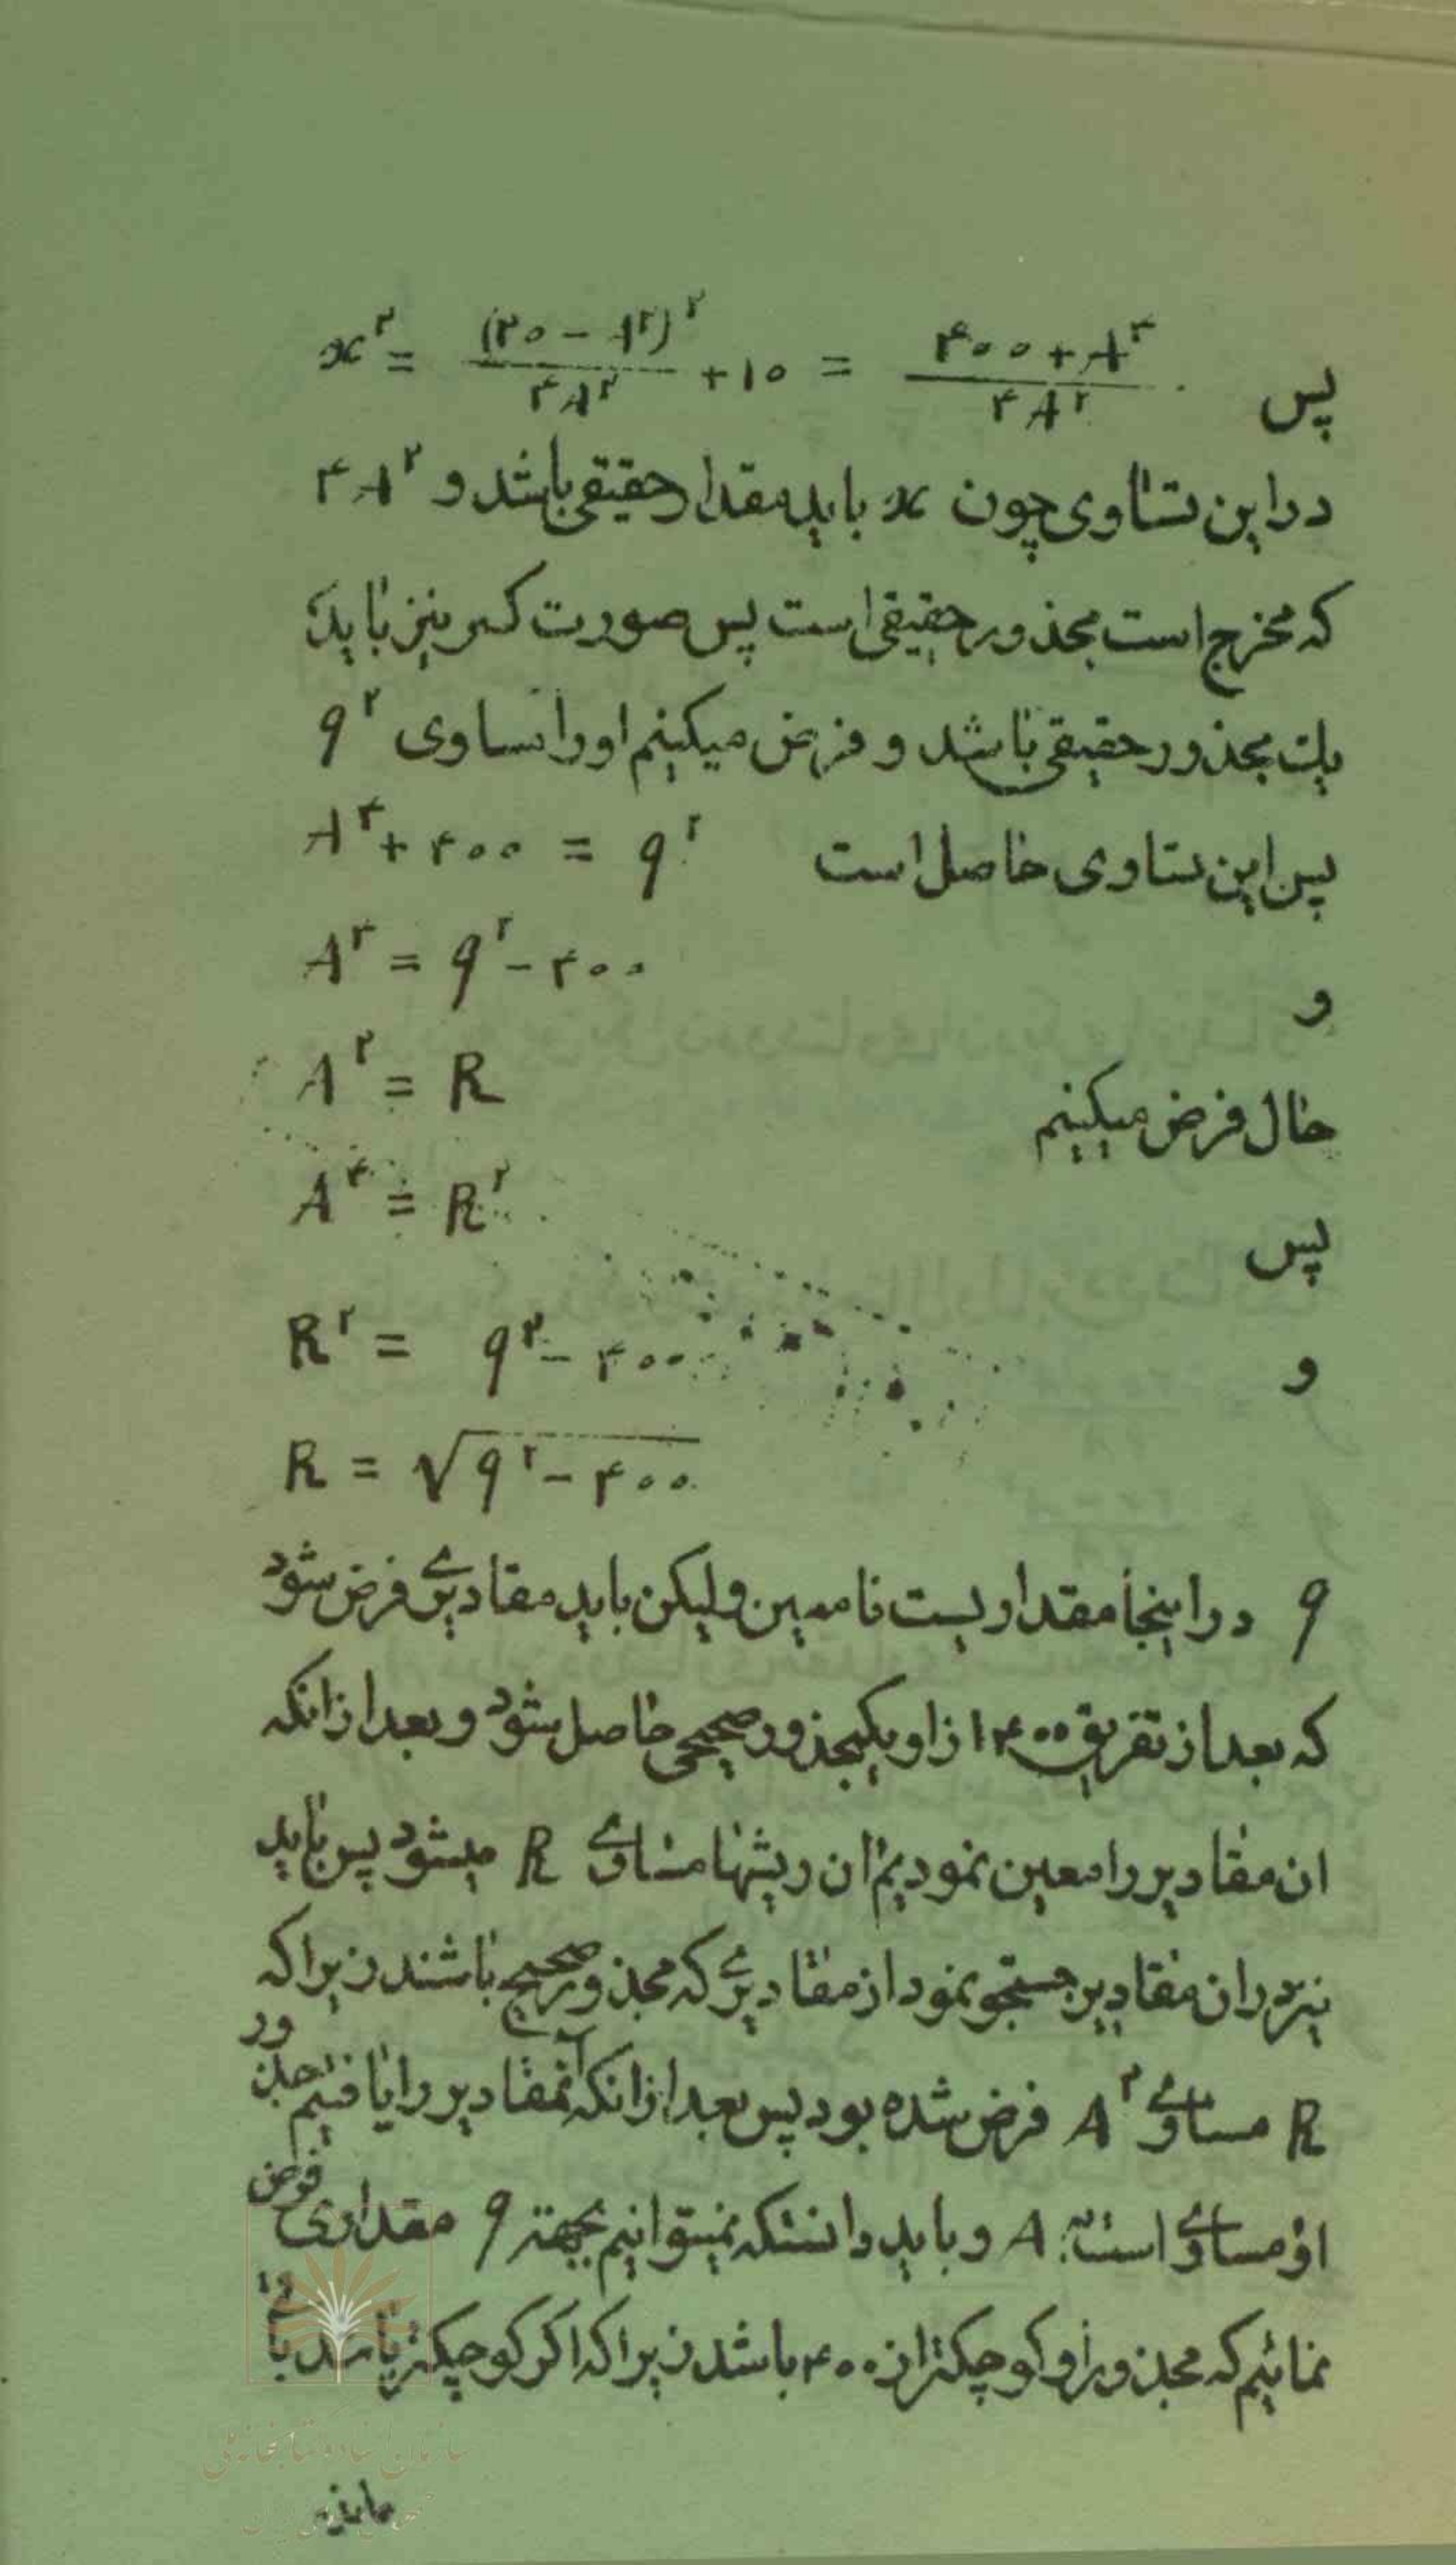 پس x² = (۲۰ − A²)² / ۴A² + ۱۰ = ۴۰۰ + A⁴ / ۴A²
در این تساوی چون x باید مقدار حقیقی باشد و ۴A²
که مخرج است مجذور حقیقی است پس صورت کسر نیز باید
یک مجذور حقیقی باشد و فرض میکنیم او را مساوی q²
پس این تساوی حاصل است A⁴ + ۴۰۰ = q²
و A⁴ = q² − ۴۰۰
حال فرض میکنیم A² = R
پس A⁴ = R²
و R² = q² − ۴۰۰
R = √q² − ۴۰۰
q در اینجا مقداریست نامعین ولیکن باید مقادیری فرض شود
که بعد از تفریق ۴۰۰ از او یکمجذور صحیحی حاصل شود و بعد از انکه
ان مقادیر را معین نمودیم ان ریشها مساوی R میشود پس باید
نیز در ان مقادیر جستجو نمود از مقادیری که مجذور صحیح باشند زیرا که
R مساوی A² فرض شده بود پس بعد از انکه آنمقادیر را یافتیم جذور
او مساوی است A و باید دانست که نمیتوانیم بجهته q مقداری فرض
نمائیم که مجذور او کوچکتر از ۴۰۰ باشد زیرا که اگر کوچکتر باشد باقی
مانده